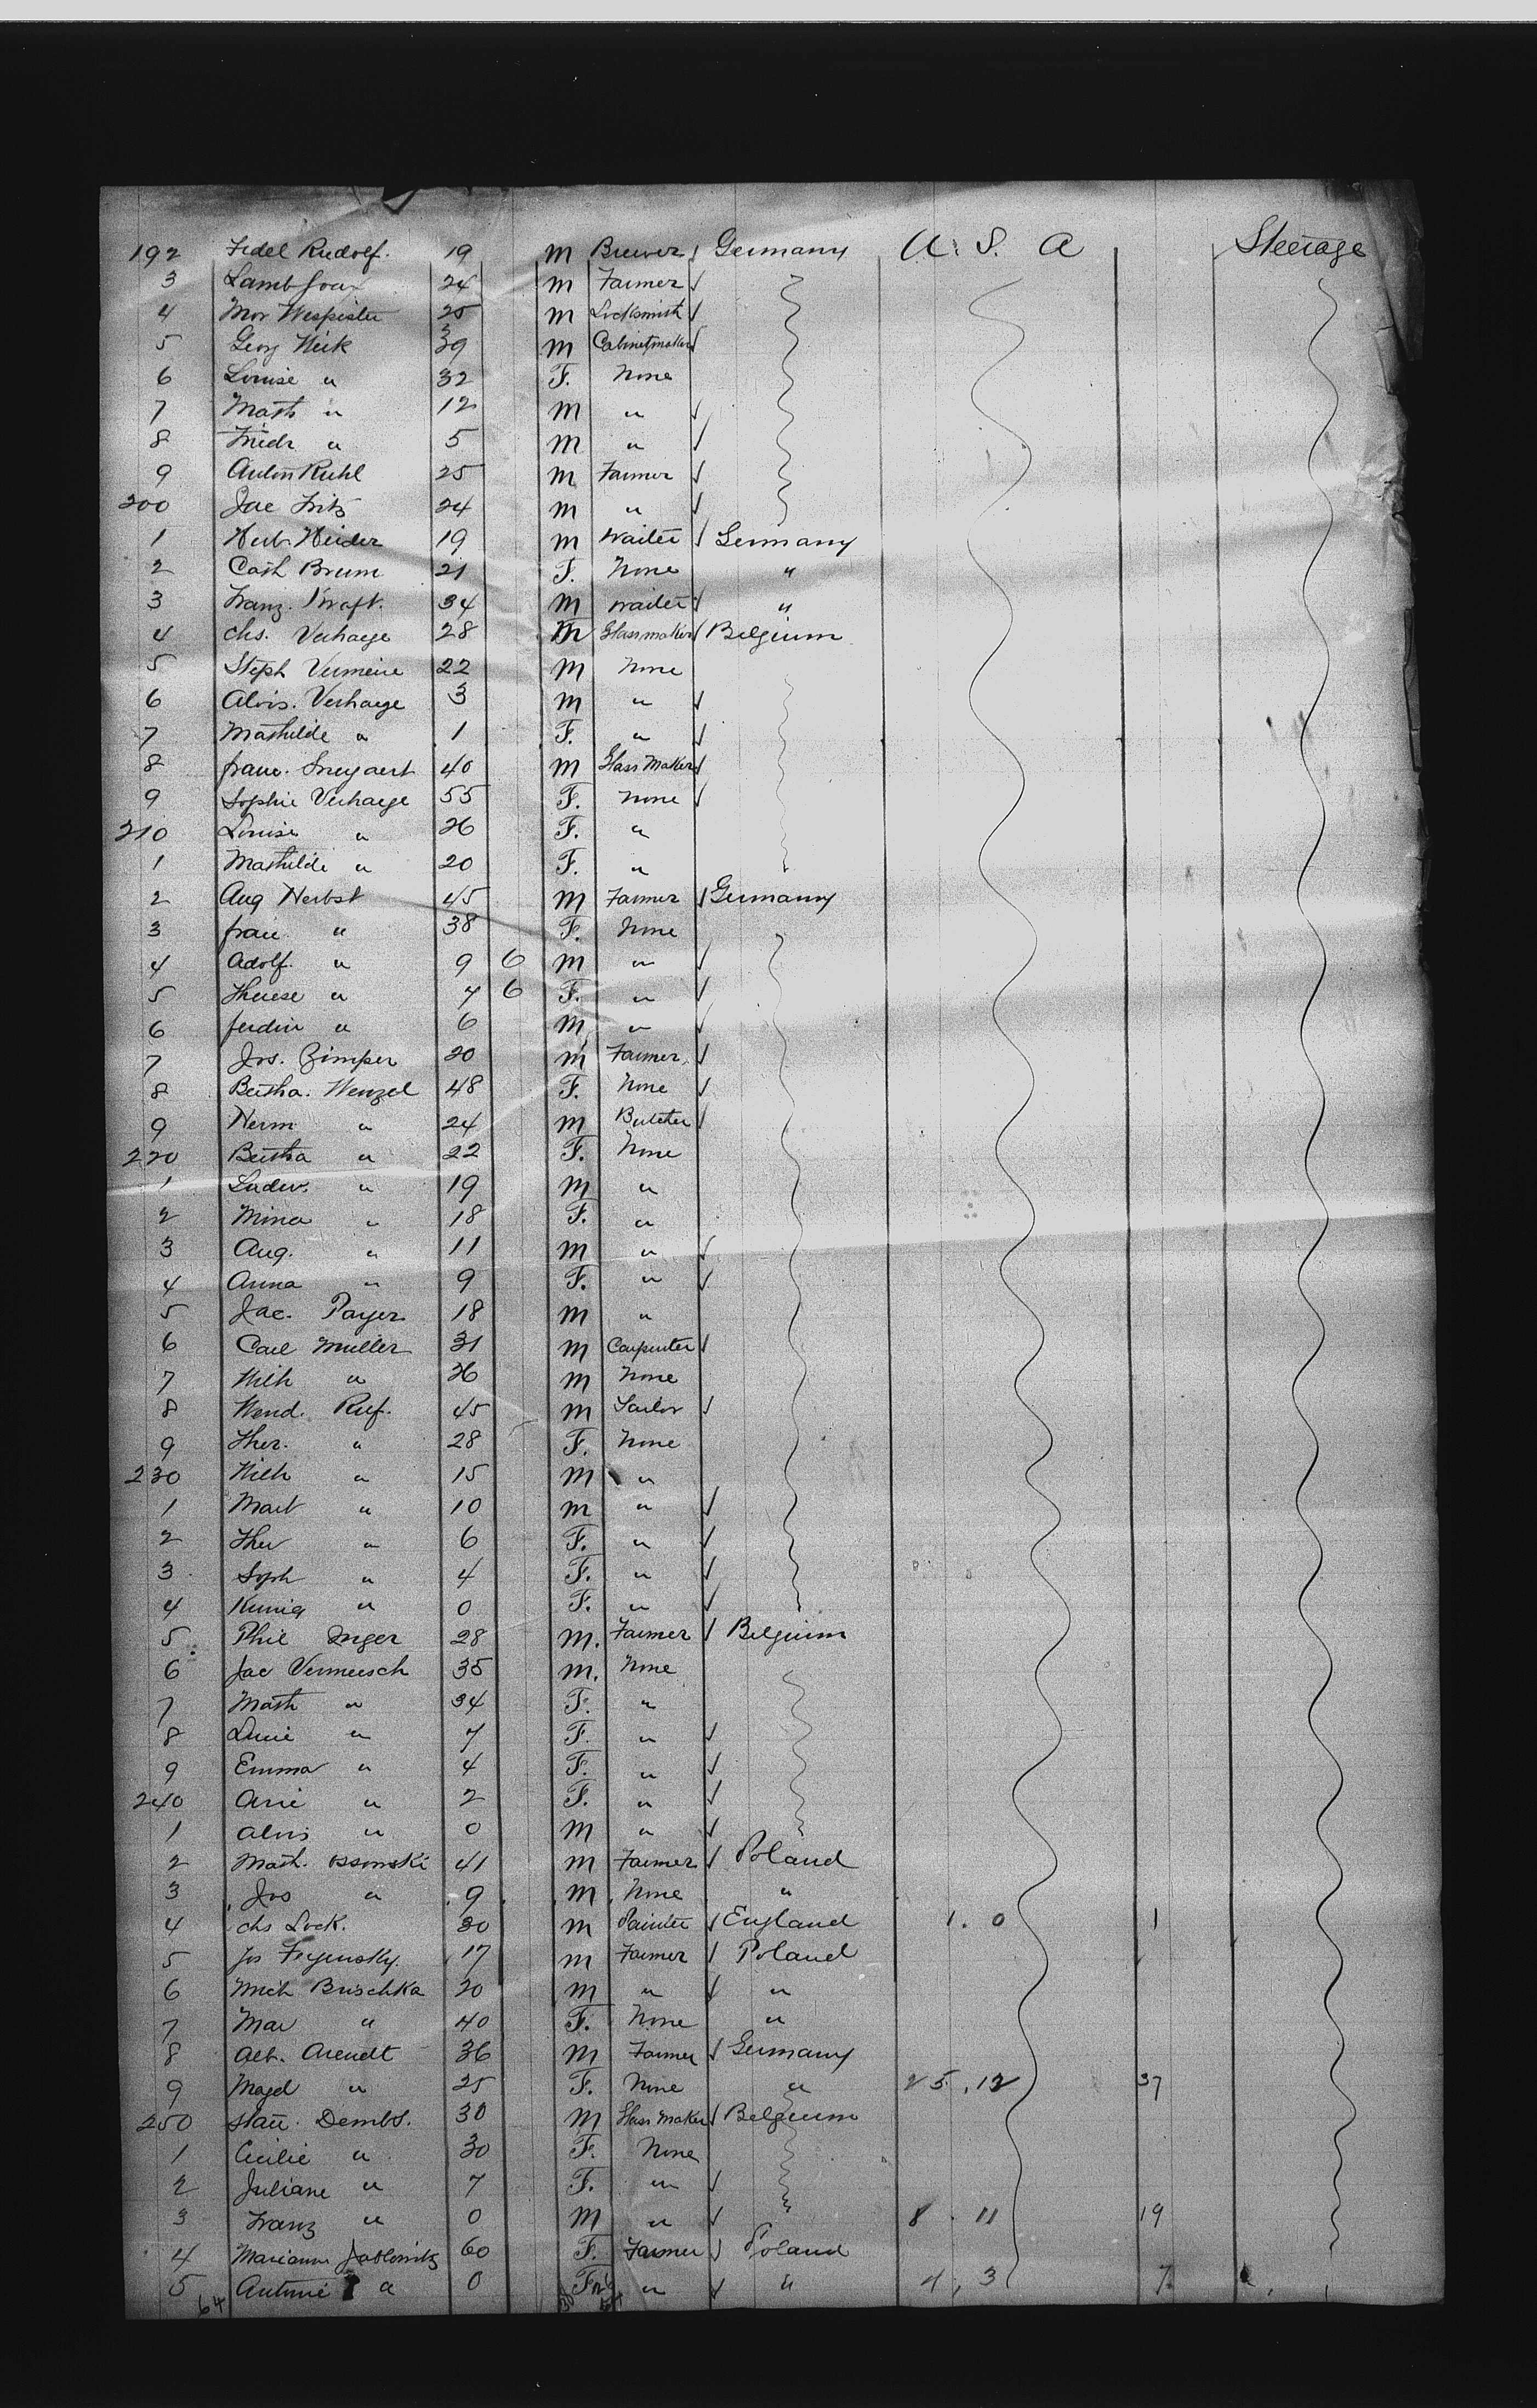 192 Fidel Rudolf. 19 M Brewer Germany U. S. A Steerage
3 24 M Farmer
4 25 M Locksmith
5 Georg 39 M Cabinetmaker
6 Louise " 32 F. None
7 Math " 12 M "
8 Friedr " 5 M "
9 Anton Ruhl 25 M Farmer
200 Jac Fritz 24 M "
1 19 M Waiter Germany
2 Cath Brum 21 F. None "
3 Franz. Kraft. 34 M Waiter "
4 chs. Verhaege 28 M Glassmaker Belgium
5 Steph Vermeire 22 M None
6 Alois. Verhaege 3 M "
7 Mathilde " 1 F. "
8 franc. 40 M Glass Maker
9 Sophie Verhaege 55 F. None
210 Louise " 26 F. "
1 Mathilde " 20 F. "
2 Aug Herbst 45 M Farmer Germany
3 " 38 F. None
4 Adolf. " 9 6 M "
5 Therese " 7 6 F. "
6 ferdin " 6 M "
7 Jos. Zimper 20 M Farmer
8 Bertha. Wenzel 48 F. None
9 Herm " 24 M Butcher
220 Bertha " 22 F. None
1 Ludw. " 19 M "
2 Mina " 18 F. "
3 Aug. " 11 M "
4 Anna " 9 F. "
5 Jac. Payer 18 M "
6 Carl Müller 31 M Carpenter
7 Wilh " 26 M None
8 Wend. Ruf. 45 M
9 Ther. " 28 F. None
230 Wilh " 15 M "
1 Mart " 10 M "
2 Ther " 6 F. "
3 Soph " 4 F. "
4 " 0 F. "
5 Phil Inger 28 M. Farmer Belgium
6 Jac Vermeersch 35 M. None
7 Math " 34 F. "
8 " 7 F. "
9 Emma " 4 F. "
240 " 2 F. "
1 alois " 0 M "
2 Math. 41 M Farmer Poland
3 Jos " 9 M None "
4 chs Lock. 30 M Painter England 1. 0 1
5 Jos 17 M Farmer Poland
6 Mich Brischka 20 M " "
7 Mar " 40 F. None "
8 Alb. Arendt 36 M Farmer Germany
9 Magd " 25 F. None " 25. 12 37
250 Dembs. 30 M Glass Maker Belgium
1 Cicilie " 30 F. None
2 Juliane " 7 F. "
3 Franz " 0 M " " 8. 11 19
4 Mariann 60 F. Farmer Poland
5 " 0 F " " 4, 3 7
64